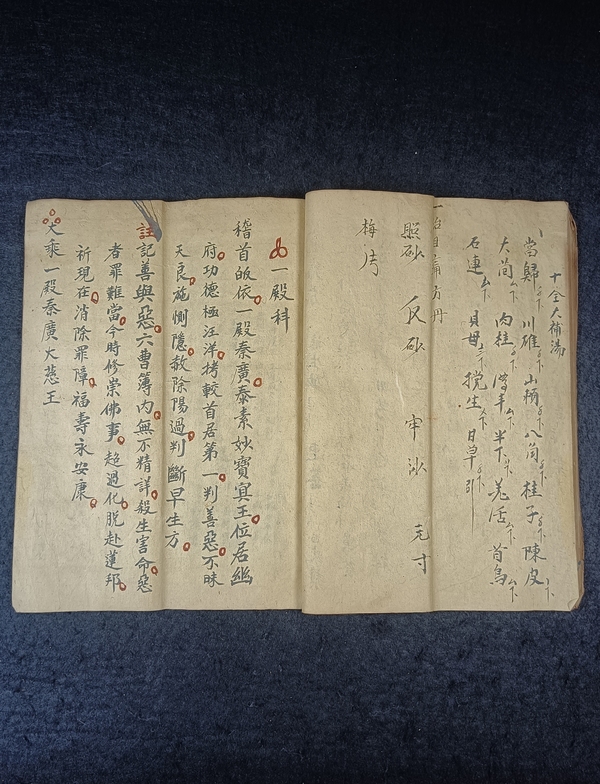 十全大補湯
當歸 川 山 八角 桂子 陳皮
大茴 肉桂 半下 羌活 首烏
石連 貝母 生 甘草 引
照砂 仮砂 沙 寸
梅片
一殿科
稽首皈依一殿秦廣泰素妙寶冥王位居幽
府功德極汪洋拷較首居第一判善惡不昧
天良施惻隱赦除陽過判斷早生方
註記善與惡六曹簿內無不精詳殺生害命惡
者罪難當今時修崇佛事超過化脫赴蓮邦
祈現在消除罪障福壽永安康
大乘一殿秦廣大慈王